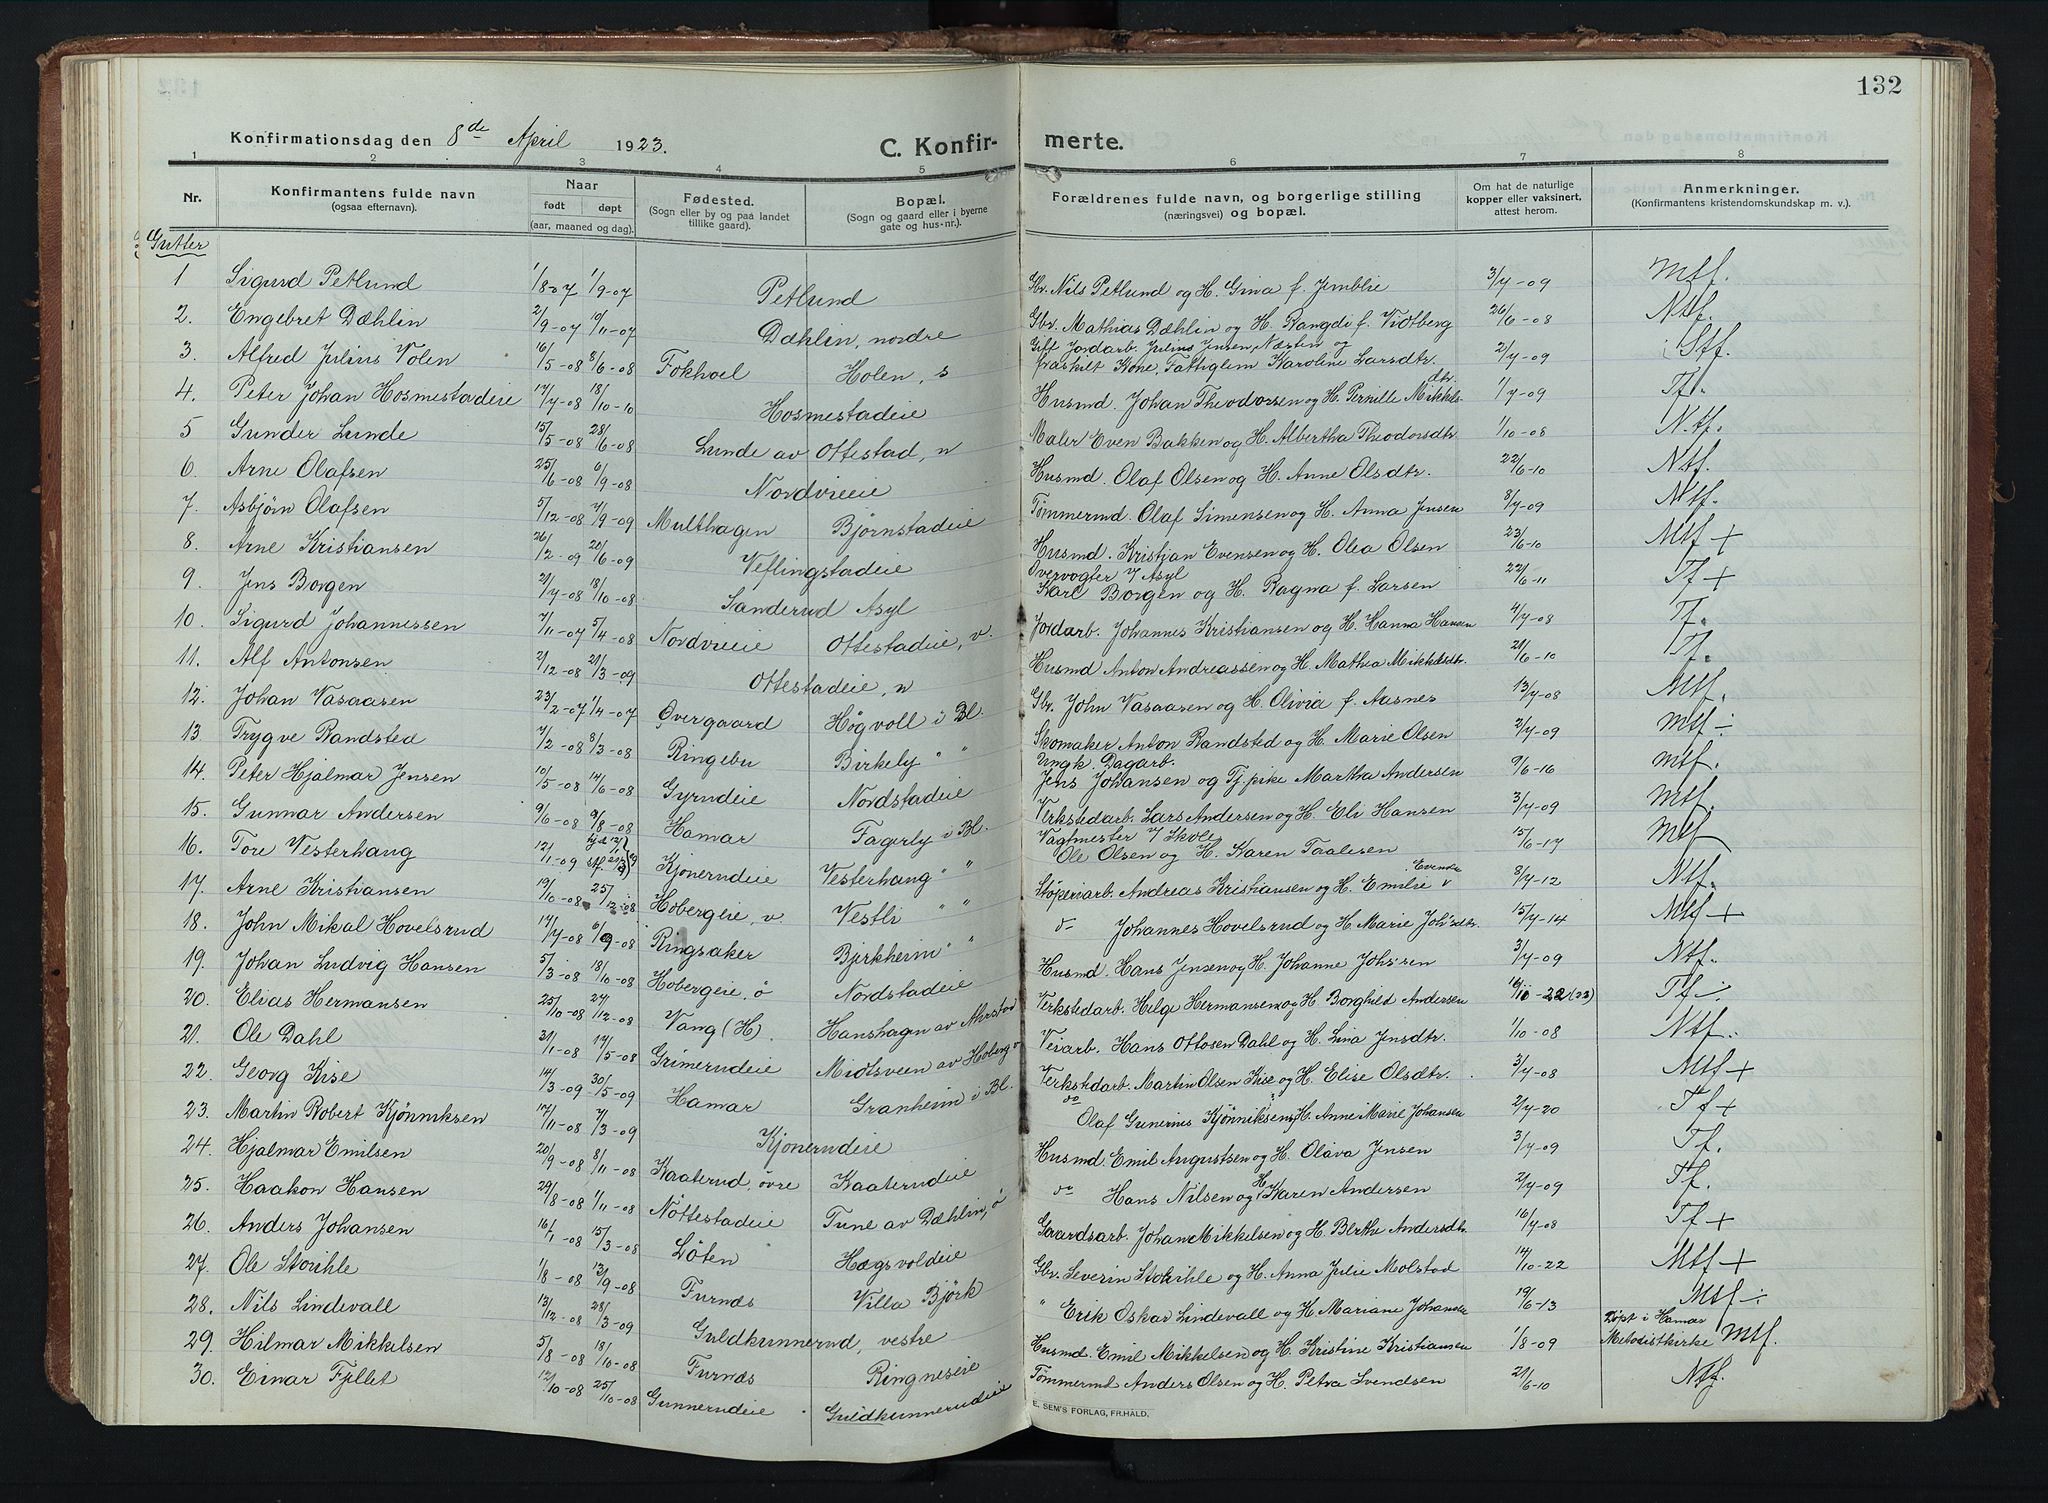 132
Konfirmationsdag den 8de April 1923.
C. Konfir-merte.
1 2 3 4 5 6 7 8
Nr.
Konfirmantens fulde navn
(ogsaa efternavn).
Naar
født døpt
(aar, maaned og dag).
Fødested.
(Sogn eller by og paa landet
tillike gaard).
Bopæl.
(Sogn og gaard eller i byerne
gate og hus-nr.).
Forældrenes fulde navn, og borgerlige stilling
(næringsvei) og bopæl.
Om hat de naturlige
kopper eller vaksinert,
attest herom.
Anmerkninger.
(Konfirmantens kristendomskundskap m. v.).
Gutter
1 Sigurd Petlund 1/8-07 1/9-07 Petlund Gbr. Nils Petlund og H. Gina f. Jemblie 3/7-09 Mtf.
2. Engebret Dæhlin 2/9-07 10/11-07 Dæhlin, nordre Gbr. Mathias Dæhlin og H. Rangdi f. Vidtberg 26/6-08 Ntf.
3. Alfred Julius Volen 16/5-08 8/6-08 Fokhoel Holen, s Gift Jordarb. Julius Jensen, Næsten og
fraskilt Kone, Fattiglem Karoline Larsdtr. 2/7-09 Stf.
4. Peter Johan Hosmestadeie 17/7-08 18/10-10 Hosmestadeie Husmd. Johan Theodorsen og H. Pernille Mikkelsdtr. 1/7-09 Tf.
5 Gunder Lunde 15/5-08 28/6-08 Lunde av Ottestad, n Maler Even Bakken og H. Albertha Theodorsdtr. 1/10-08 N.tf.
6. Arne Olafsen 25/6-08 6/9-08 Nordvieie Husmd. Olaf Olsen og H. Anne Olsdtr. 22/6-10 Ntf.
7. Asbjørn Olafsen 5/12-08 7/9-09 Multhagen Bjørnstadeie Tømmermd. Olaf Simensen og H. Anna Jensen 8/7-09 Ntf.
8. Arne Kristiansen 26/2-09 20/6-09 Veflingstadeie Husmd. Kristian Evensen og H. Olea Olsen 23/6-10 Mtf +
9. Jens Borgen 21/7-08 18/10-08 Sanderud Asyl Overvogter v/ Asyl
Karl Borgen og H. Ragna f. Larsen 22/6-11 Tf +
10. Sigurd Johannessen 7/11-07 5/4-08 Nordvieie Ottestadeie, v. Jordarb. Johannes Kristiansen og H. Hanna Hansen 4/7-08 Tf.
11. Alf Antonsen 2/12-08 21/3-09 Ottestadeie, n Husmd Anton Andreassen og H. Mathea Mikkelsdtr. 21/6-10 Tf.
12. Johan Vasaasen 23/2-07 1/4-07 Øvergaard Høgvoll i Bl. Gbr. John Vasaasen og H. Olivia f. Aasnes 13/7-08 Mtf.
13 Trygve Randsted 7/2-08 8/3-08 Ringebu Birkely " " Skomaker Anton Randsted og H. Marie Olsen 2/7-09 Mtf ÷
14. Peter Hjalmar Jensen 10/5-08 14/6-08 Gyrudeie Nordstadeie Ungk. Dagarb.
Jens Johansen og Tj.pike Martha Andersen 9/6-16 Mtf.
15. Gunnar Andersen 9/6-08 9/8-08 Hamar Fagerly i Bl. Verkstedarb. Lars Andersen og H. Eli Hansen 3/7-09 Mtf.
16. Tore Vesterhaug 12/1-09 Kjonerudeie Vesterhaug " " Vagtmester v/ Skole
Ole Olsen og H. Karen Taalesen 15/6-17 Mtf
17. Arne Kristiansen 19/10-08 25/12-08 Hobergeie, v Vestli " " Støperiarb. Andreas Kristiansen og H. Emilie Evensen 8/7-12 Ntf.
18. John Mikal Hovelsrud 14/7-08 6/9-08 Ringsaker Bjerkheim " " do Johannes Hovelsrud og H. Marie Joh'sdtr. 15/7-14 Mtf +
19. Johan Ludvig Hansen 5/3-08 18/10-08 Hobergeie, ö Nordstadeie Husmd. Hans Jensen og H. Johanne Johs'ren 3/7-09 Ntf.
20. Elias Hermansen 25/10-08 27/12-08 Vang (H). Hanshagen av Ahrstad Verkstedarb. Helge Hermansen og H. Borghild Andersen 16/11-22 (23) Tf ÷
21. Ole Dahl 31/1-08 17/5-08 Grimerudeie Midtsveen av Hoberg ö Veiarb. Hans Ottosen Dahl og H. Lina Jensdtr. 1/10-08 Ntf.
22. Georg Kise 14/3-09 30/5-09 Hamar Granheim i Bl. Verkstedarb. Martin Olsen Kise og H. Elise Olsdtr. 3/7-08 Mtf +
23. Martin Robert Kjønniksen 17/11-08 7/3-09 Kjonerudeie do Olaf Gunerius Kjønniksen og H. Anne Marie Johansen 2/7-20 Tf +
24. Hjalmar Emilsen 20/9-08 8/11-08 Kaaterud, övre Kaaterudeie Husmd. Emil Augustsen og H. Olava Jensen 3/7-09 Tf.
25. Haakon Hansen 29/8-08 1/11-08 Nöttestadeie Tune av Dæhlin, ö do Hans Nilsen og H. Karen Andersen 2/7-09 Tf.
26. Anders Johansen 16/1-08 15/3-08 Löten Hægsvoldeie Gaardsarb. Johan Mikkelsen og H. Berthe Andersdtr. 16/7-08 Tf +
27. Ole Storihle 1/8-08 13/9-08 Furnæs Villa Björk Gbr. Severin Storihle og H. Anna Julie Molstad 14/10-22 Mtf +
28. Nils Lindevall 13/12-08 28/3-09 Guldkunnerud, vestre " Erik Oskar Lindevall og H. Mariane Johansen 19/6-13 Mtf ÷
29. Hilmar Mikkelsen 5/8-08 18/10-08 Furnæs Ringneseie Husmd. Emil Mikkelsen og H. Kristine Kristiansen 1/8-09 Döpt i Hamar
Metodistkirke Mtf.
30. Einar Fjellet 12/10-08 25/10-08 Gunnerudeie Guldkunnerudeie Tömmermd Anders Olsen og H. Petra Svendsen 21/6-10 Ntf
E. SEM'S FORLAG, FR.HALD.